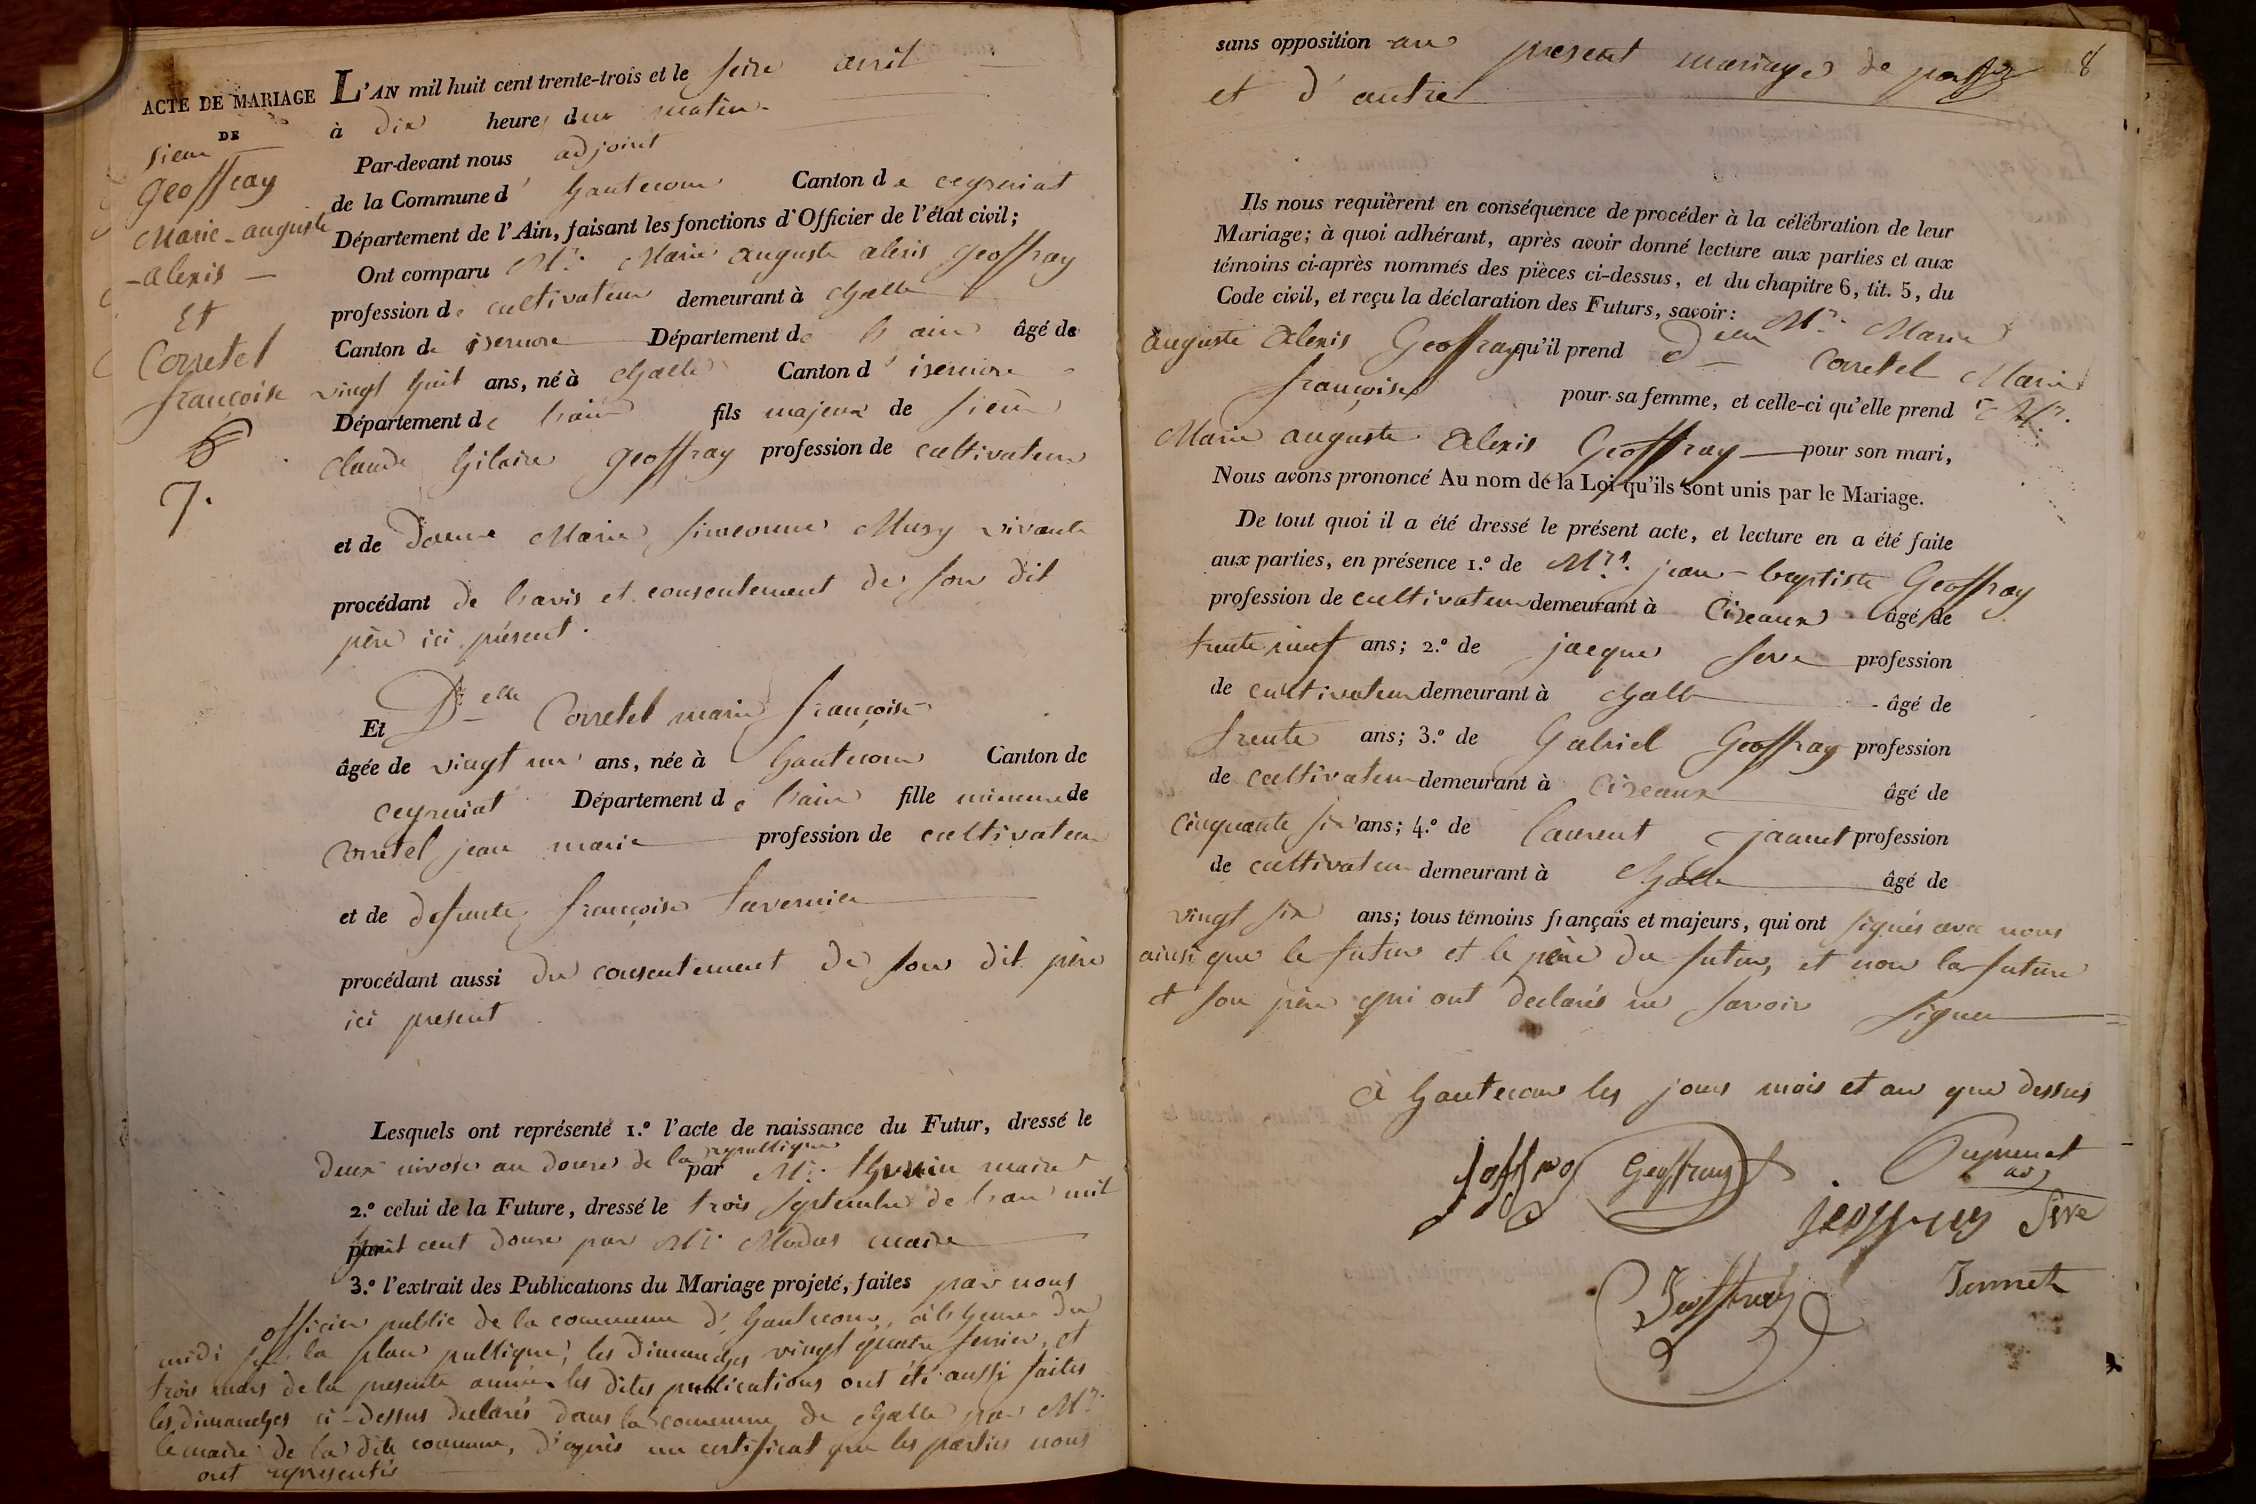 ACTE DE MARIAGE
DE
Sieur
Geoffray
Marie-auguste
-alexis-
Et
Corretel
françoise
7.
L'AN mil huit cent trente-trois et le seize avril
à dix heures du matin
Par-devant nous adjoint
de la Commune d'hautecour Canton de ceyzeriat
Département de l'Ain, faisant les fonctions d'Officier de l'état civil;
Ont comparu Mr. Marie auguste alexis Geoffray
profession de cultivateur demeurant à Challe
Canton de isernore Département de l'ain âgé de
vingt huit ans, né à Challe Canton d'isernore
Département de l'ain fils majeur de sieur
Claude hilaire Geoffray profession de cultivateur
et de Dame Marie simeonne Musy vivante
procédant de l'avis et consentement de son dit
père ici présent.
Et Delle Corretel marie françoise
âgée de vingt un ans, née à hautecour Canton de
ceyzeriat Département de l'ain fille mineure de
Corretel jean marie profession de cultivateur
et de defunte françoise Tavernier
procédant aussi du consentement de son dit père
ici present
Lesquels ont représenté 1.º l'acte de naissance du Futur, dressé le
deux nivose an douze de la republique par Mr. maire
2.º celui de la Future, dressé le trois septembre de l'an mil
huit cent douze par Mr. Modas maire
3.º l'extrait des Publications du Mariage projeté, faites par nous
officier public de la commune d'hautecour, à l'heure du
midi sur la place publique, les dimanches vingt quatre fevrier, et
trois mars de la presente année les dites publications ont été aussi faites
les dimanches ci-dessus declarés dans la commune de Challe par Mr.
le maire de la dite commune, d'après un certificat que les parties nous
ont representés
8
sans opposition au present mariage de part
et d'autre
Ils nous requièrent en conséquence de procéder à la célébration de leur
Mariage; à quoi adhérant, après avoir donné lecture aux parties et aux
témoins ci-après nommés des pièces ci-dessus, et du chapitre 6, tit. 5, du
Code civil, et reçu la déclaration des Futurs, savoir: Mr. Marie
auguste Alexis Geoffray qu'il prend Delle Corretel Marie
françoise pour sa femme, et celle-ci qu'elle prend Mr.
Marie auguste Alexis Geoffray pour son mari,
Nous avons prononcé Au nom de la Loi qu'ils sont unis par le Mariage.
De tout quoi il a été dressé le présent acte, et lecture en a été faite
aux parties, en présence 1.º de Mrs. jean-baptiste Geoffray
profession de cultivateur demeurant à Cizeaux âgé de
trente neuf ans; 2.º de jacque serve profession
de cultivateur demeurant à Challe âgé de
trente ans; 3.º de Gabriel Geoffray profession
de cultivateur demeurant à Cizeaux âgé de
cinquante six ans; 4.º de laurent jannet profession
de cultivateur demeurant à Challe âgé de
vingt six ans; tous témoins français et majeurs, qui ont signés avec nous
ainsi que le futur et le père du futur, et non la future
et son père qui ont declarés ne savoir signer
à hautecour les jours mois et an que dessus
joffray Geoffray
adj
jeoffray Serve
Jeoffray Jannet